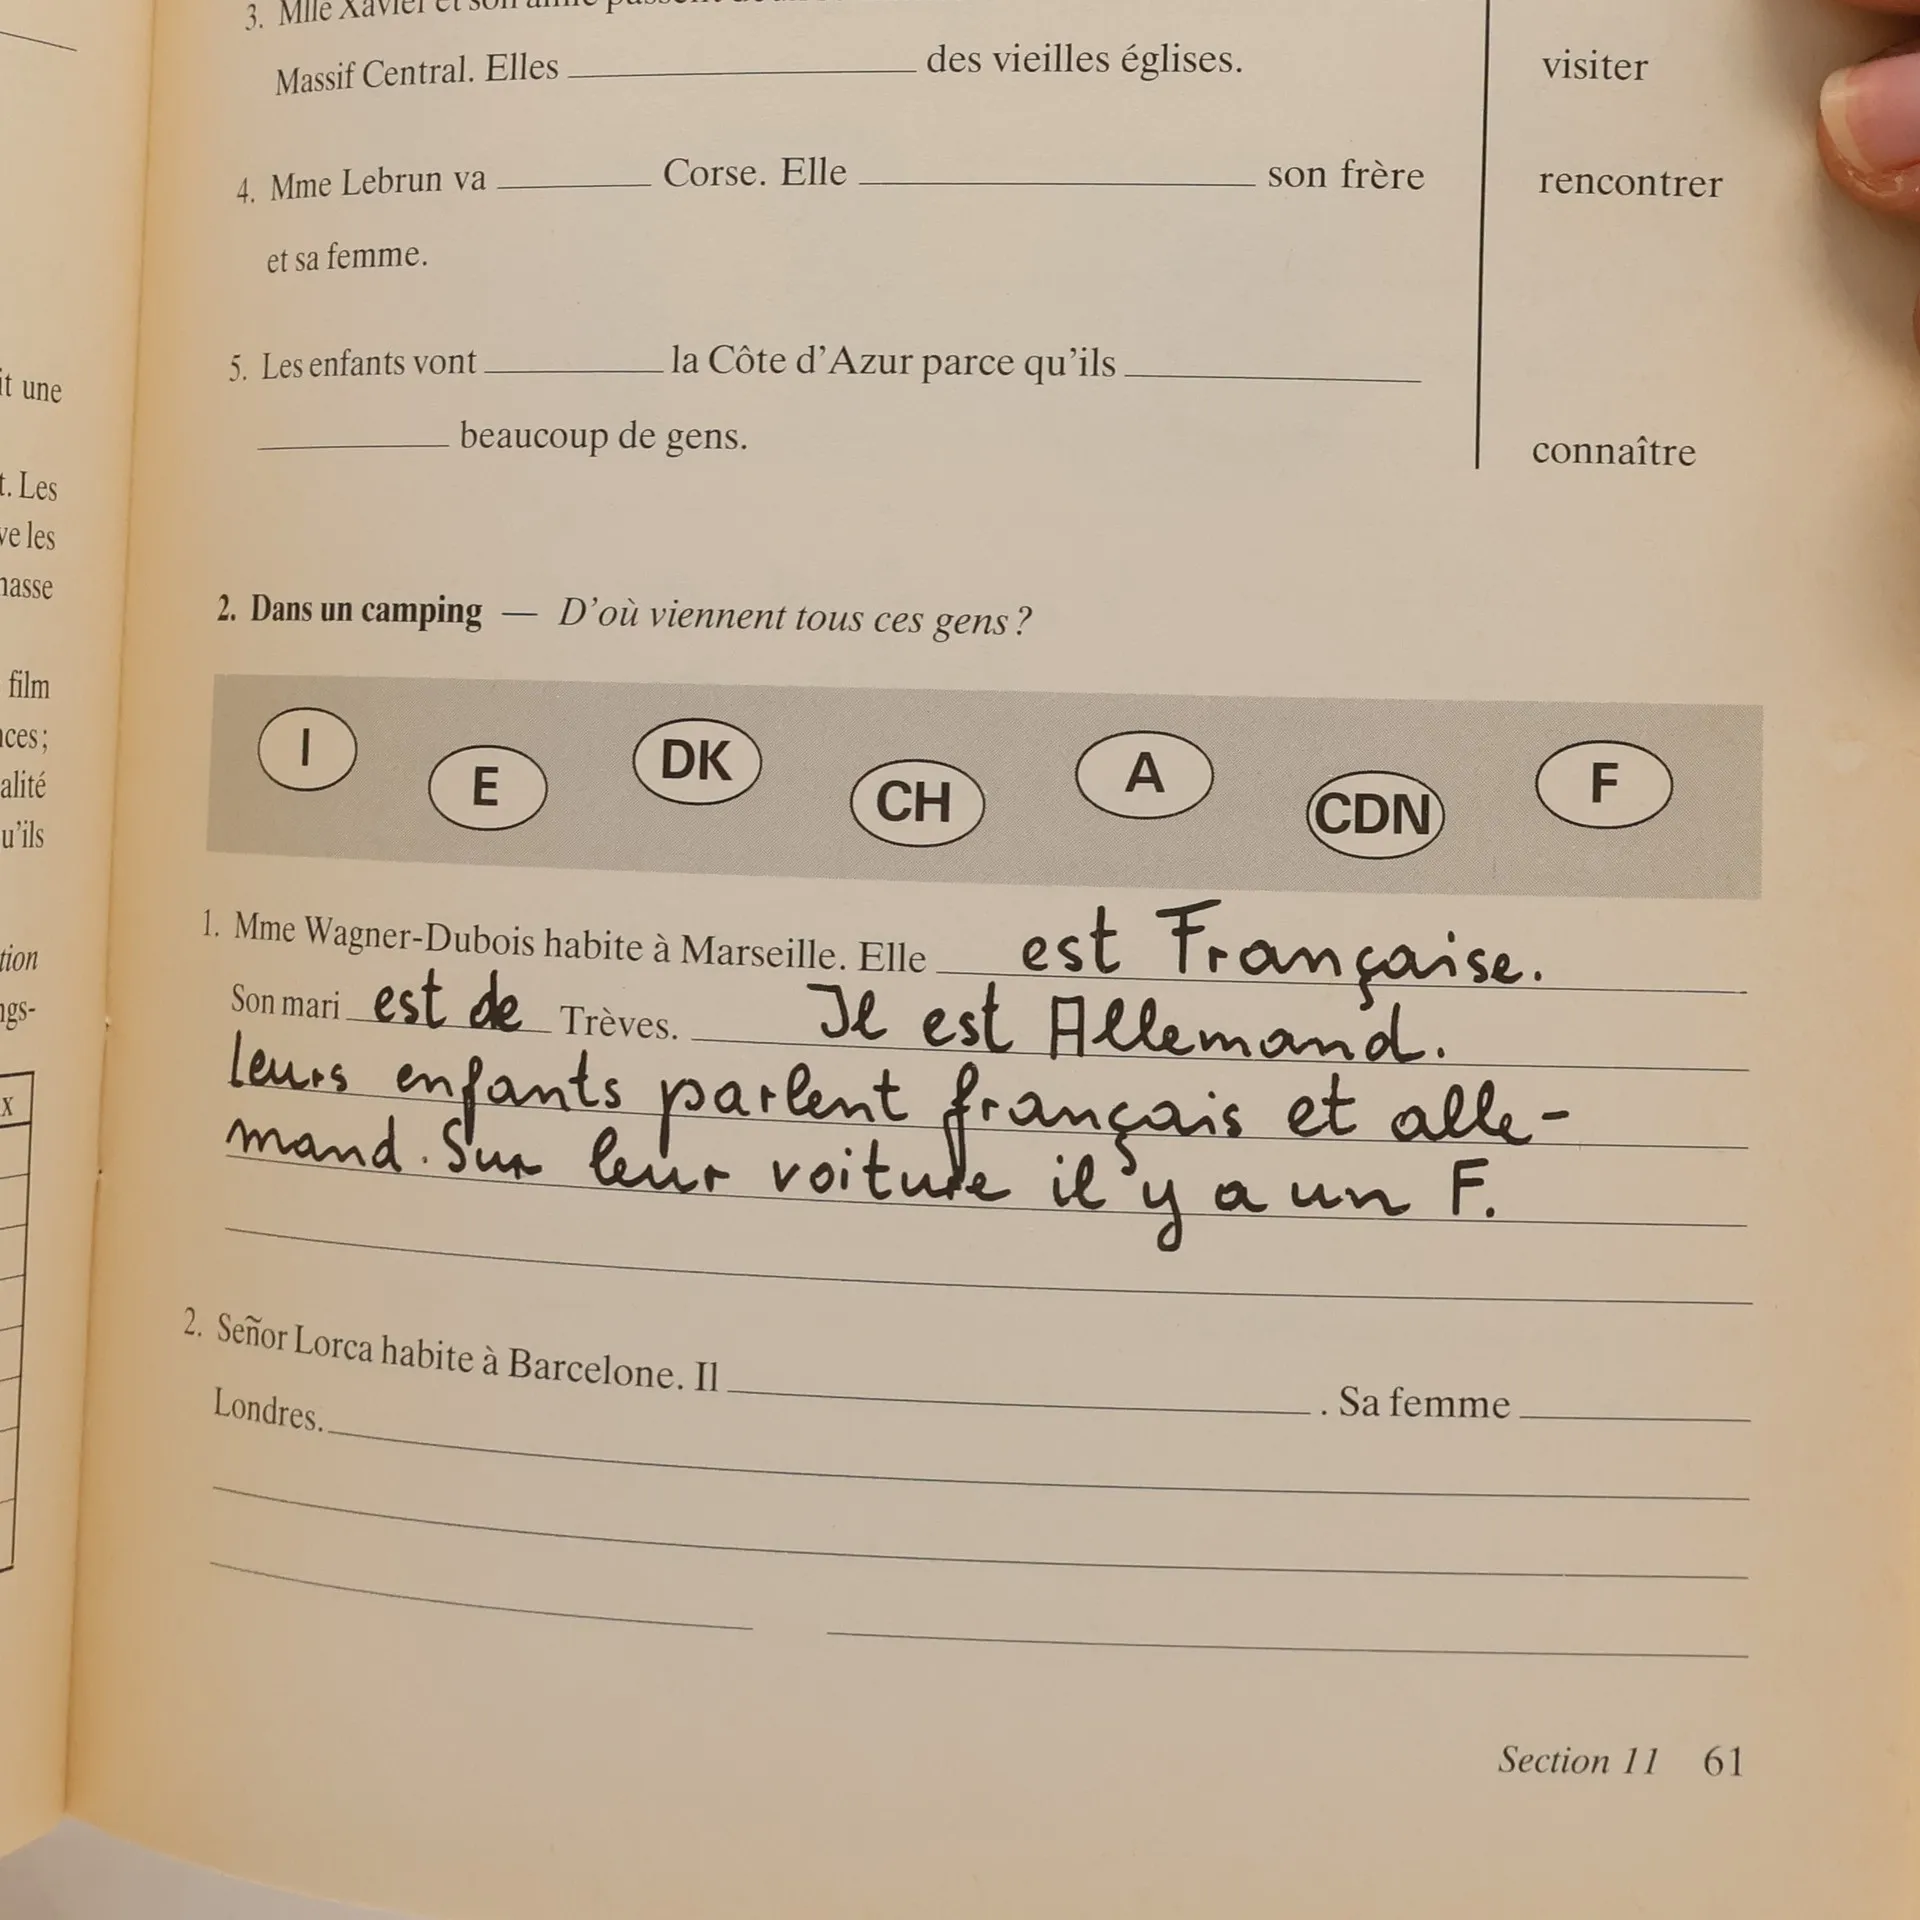 3. Mlle Xavier et son amie passent
Massif Central. Elles ________ des vieilles églises.
visiter
4. Mme Lebrun va ________ Corse. Elle ________ son frère
rencontrer
et sa femme.
5. Les enfants vont ________ la Côte d'Azur parce qu'ils ________
________ beaucoup de gens.
connaître
it une
t. Les
ve les
film
alité
u'ils
2. Dans un camping — D'où viennent tous ces gens?
I E DK CH A CDN F
1. Mme Wagner-Dubois habite à Marseille. Elle est Française.
Son mari est de Trèves. Il est Allemand.
leurs enfants parlent français et alle-
mand. Sur leur voiture il y a un F.
2. Señor Lorca habite à Barcelone. Il ________. Sa femme ________
Londres. ________
x
Section 11 61